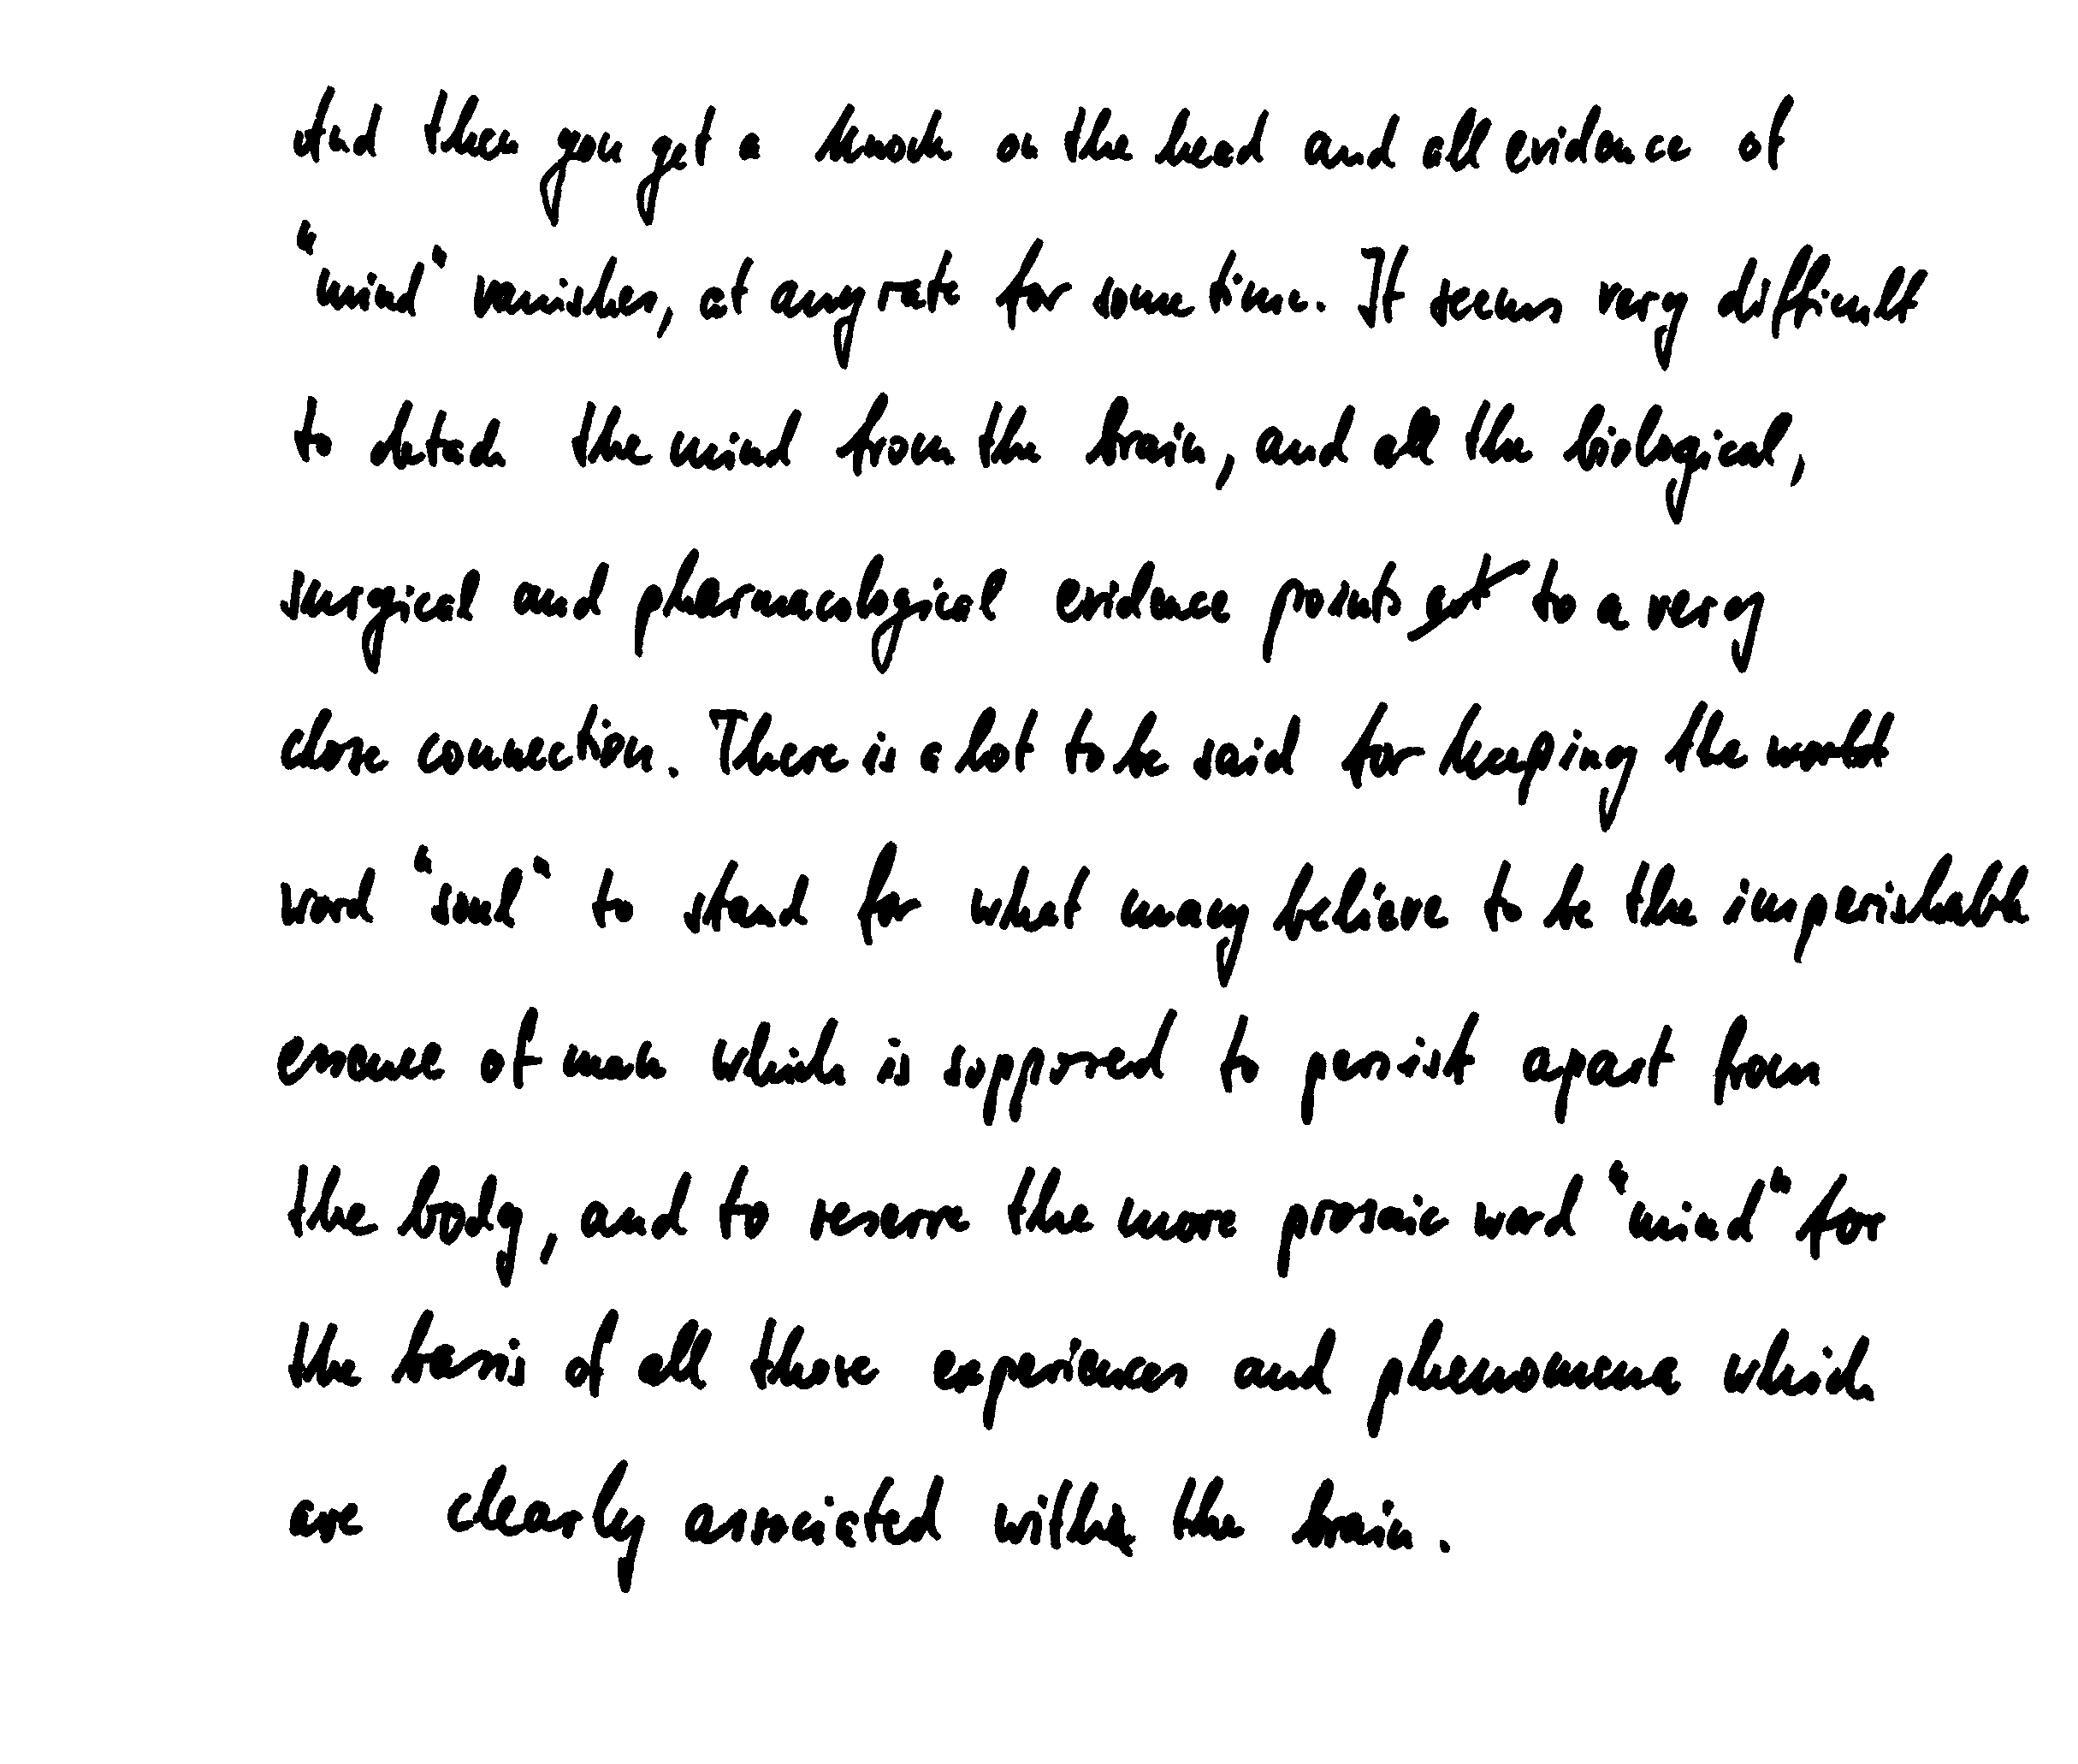 And then you get a knock on the head and all evidence of
"mind" vanishes, at any rate for some time. It seems very difficult
to detach the mind from the brain, and all the biological,
surgical and pharmacological evidence points to a very
close connection. There is a lot to be said for keeping the
word "soul" to stand for what many believe to be the imperishable
essence of man which is supposed to persist apart from
the body, and to reserve the more prosaic word "mind" for
the basis of all those experiences and phenomena which
are clearly associated with the brain.